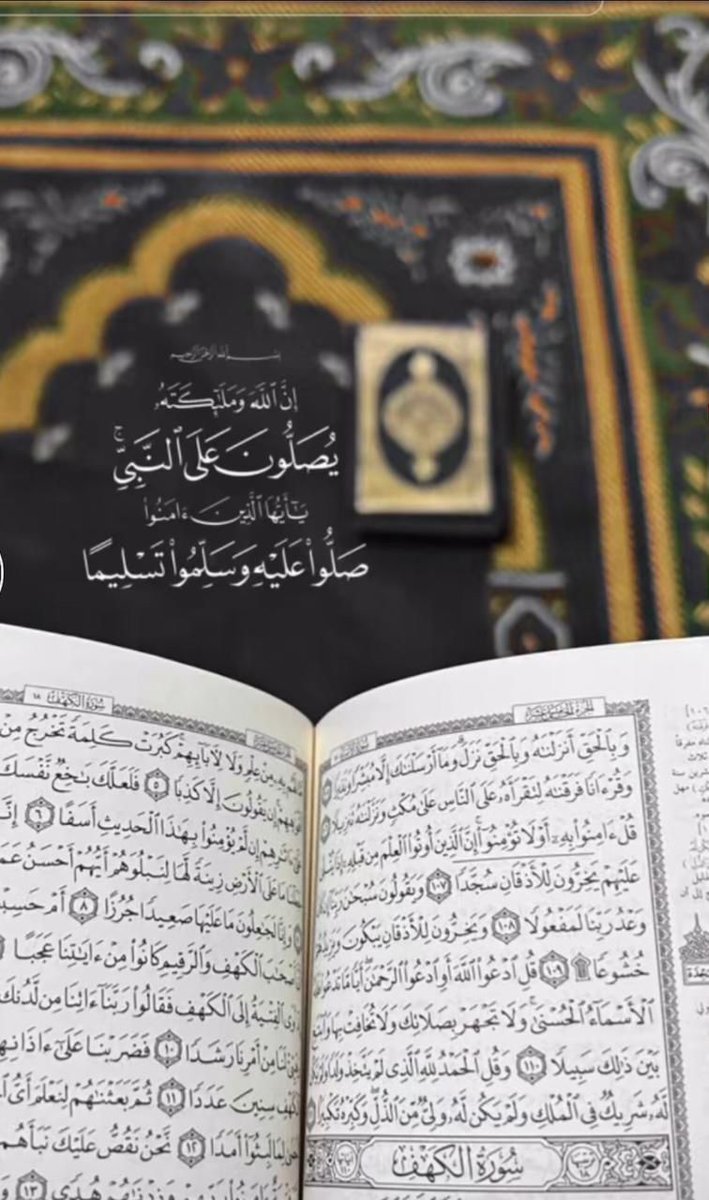 بسم الله الرحمن الرحيم
إِنَّ ٱللَّهَ وَمَلَـٰٓئِكَتَهُۥ
يُصَلُّونَ عَلَى ٱلنَّبِيِّ ۚ
يَـٰٓأَيُّهَا ٱلَّذِينَ ءَامَنُوا۟
صَلُّوا۟ عَلَيْهِ وَسَلِّمُوا۟ تَسْلِيمًا
وَبِٱلْحَقِّ أَنزَلْنَـٰهُ وَبِٱلْحَقِّ نَزَلَ ۗ وَمَآ أَرْسَلْنَـٰكَ إِلَّا مُبَشِّرًا وَنَذِيرًا
وَقُرْءَانًا فَرَقْنَـٰهُ لِتَقْرَأَهُۥ عَلَى ٱلنَّاسِ عَلَىٰ مُكْثٍ وَنَزَّلْنَـٰهُ تَنزِيلًا
قُلْ ءَامِنُوا۟ بِهِۦٓ أَوْ لَا تُؤْمِنُوٓا۟ ۚ إِنَّ ٱلَّذِينَ أُوتُوا۟ ٱلْعِلْمَ مِن قَبْلِهِۦٓ إِذَا
عَلَيْهِمْ يَخِرُّونَ لِلْأَذْقَانِ سُجَّدًا ١٠٧ وَيَقُولُونَ سُبْحَـٰنَ رَبِّنَآ
وَعْدُ رَبِّنَا لَمَفْعُولًا ١٠٨ وَيَخِرُّونَ لِلْأَذْقَانِ يَبْكُونَ
خُشُوعًا ۩ ١٠٩ قُلِ ٱدْعُوا۟ ٱللَّهَ أَوِ ٱدْعُوا۟ ٱلرَّحْمَـٰنَ ۖ أَيًّا مَّا تَدْعُوا۟
ٱلْأَسْمَآءُ ٱلْحُسْنَىٰ ۚ وَلَا تَجْهَرْ بِصَلَاتِكَ وَلَا تُخَافِتْ بِهَا وَٱبْتَغِ
بَيْنَ ذَٰلِكَ سَبِيلًا ١١٠ وَقُلِ ٱلْحَمْدُ لِلَّهِ ٱلَّذِى لَمْ يَتَّخِذْ وَلَدًا وَلَمْ يَكُن
لَّهُۥ شَرِيكٌ فِى ٱلْمُلْكِ وَلَمْ يَكُن لَّهُۥ وَلِىٌّ مِّنَ ٱلذُّلِّ ۖ وَكَبِّرْهُ تَكْبِيرًۢا
سُورَةُ الكَهْفِ
سُورَةُ الكَهْفِ ١٨
مِنْ عِلْمٍ وَلَا لِـَٔابَآئِهِمْ ۚ كَبُرَتْ كَلِمَةً تَخْرُجُ مِنْ
إِن يَقُولُونَ إِلَّا كَذِبًا ٥ فَلَعَلَّكَ بَـٰخِعٌ نَّفْسَكَ
إِن لَّمْ يُؤْمِنُوا۟ بِهَـٰذَا ٱلْحَدِيثِ أَسَفًا ٦ إِنَّا
مَا عَلَى ٱلْأَرْضِ زِينَةً لَّهَا لِنَبْلُوَهُمْ أَيُّهُمْ أَحْسَنُ
وَإِنَّا لَجَـٰعِلُونَ مَا عَلَيْهَا صَعِيدًا جُرُزًا ٨ أَمْ
أَصْحَـٰبَ ٱلْكَهْفِ وَٱلرَّقِيمِ كَانُوا۟ مِنْ ءَايَـٰتِنَا عَجَبًا
ٱلْفِتْيَةُ إِلَى ٱلْكَهْفِ فَقَالُوا۟ رَبَّنَآ ءَاتِنَا مِن لَّدُنكَ
لَنَا مِنْ أَمْرِنَا رَشَدًا ١٠ فَضَرَبْنَا عَلَىٰٓ ءَاذَانِهِمْ
ٱلْكَهْفِ سِنِينَ عَدَدًا ١١ ثُمَّ بَعَثْنَـٰهُمْ لِنَعْلَمَ أَىُّ
لِمَا لَبِثُوٓا۟ أَمَدًا ١٢ نَّحْنُ نَقُصُّ عَلَيْكَ نَبَأَهُم
وَزِدْنَـٰهُمْ هُدًى ١٣